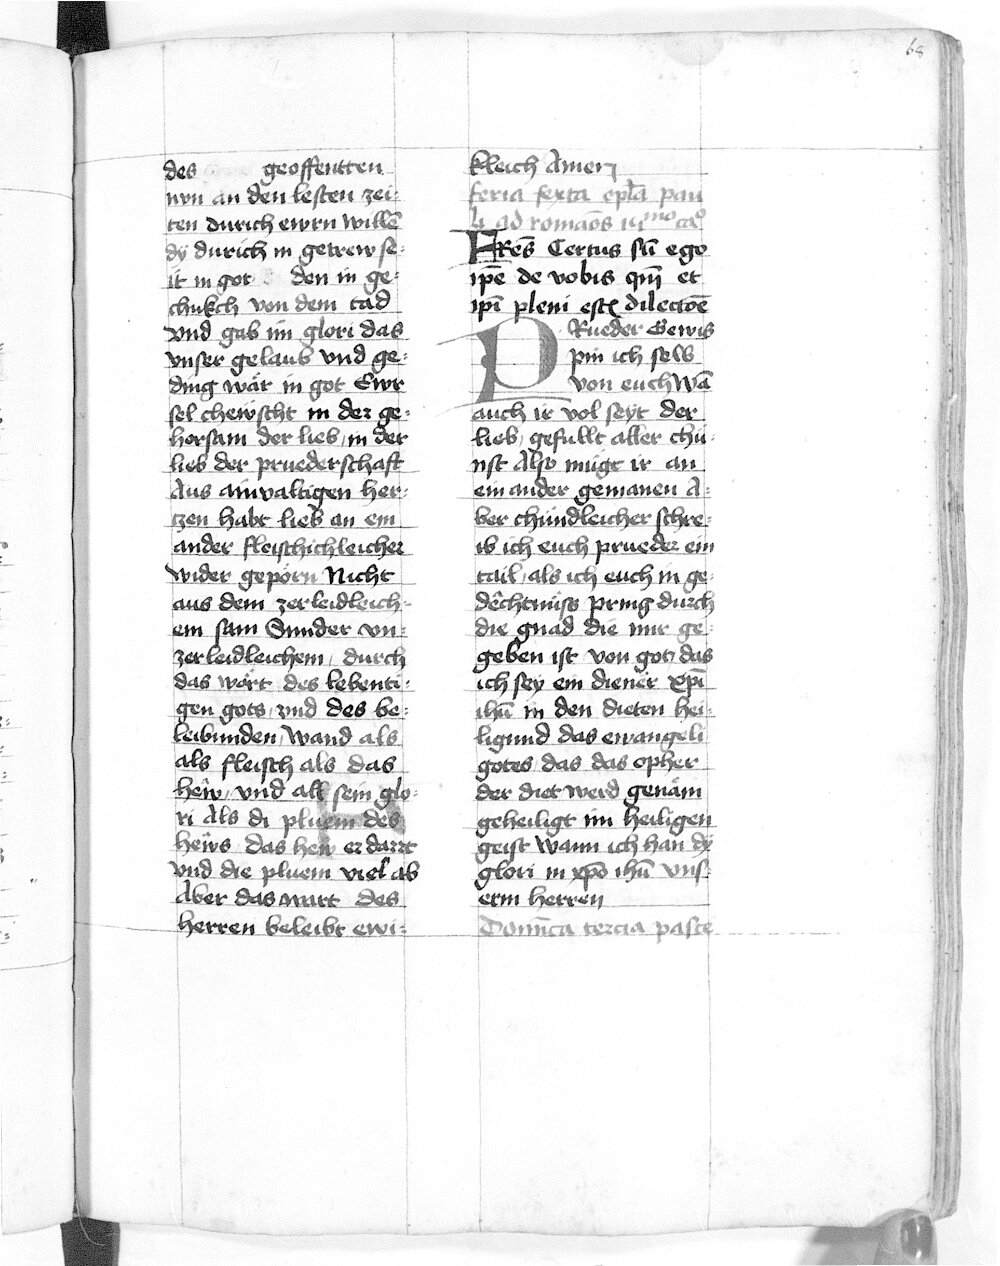 68
des geoffentten
nvn an den lesten zei-
ten durich ewrn willē
dy durich in getrew se-
it in got den in ge-
chukch von dem tad
vnd gab im glori das
vnser gelaub vnd ge-
ding wär in got Ewr
sel chewscht in der ge-
horsam der lieb, in der
lieb der pruederschaft
Aus ainvaltigen her-
tzen habt lieb an ein
ander fleischichleicher
wider geporn Nicht
aus dem zerleidleich-
em sam Sunder vn-
zerleidleichem, durch
das wort des lebenti-
gen gots, vnd des be-
leibunden, Wand als
als fleisch als das
hew, vnd all sein glo-
ri Als di pluem des
hews das hew erdarrt
vnd die pluem viel ab
Aber das wart des
herren beleibt ewi-
kleich Amen
feria sexta epl̄a pau
li ad romāos
FRēs Certus sū ego
ip̄e de vobis qm̄ et
ip̄i pleni estis dilectōe
PRueder Gewis
pin ich selb
von euch Wā
auch ir vol seyt der
lieb, gefullt aller chü-
nst Also mügt ir an
ein ander gemanen A-
ber chundleicher schre-
ib ich euch prueder ein
tail, als ich euch in ge-
dêchtnüss pring durch
die gnad die mir ge-
geben ist von got, das
ich sey ein diener xp̄i
ihū in den dieten hei-
ligund das ewangeli
gotes, das das opher
der diet werd genäm
geheiligt im heiligen
geist Wann ich han dy
glori in xp̄o ihū vns-
erm herren
Domīca tercia pasce